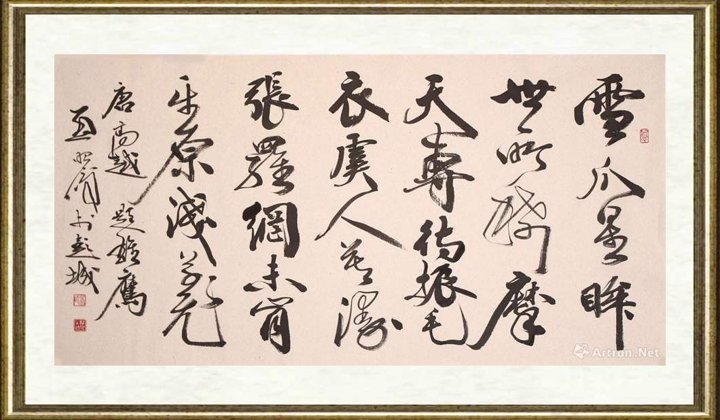 雪爪星眸
世所稀摩
天專待振毛
衣虞人莫漫
張羅網未肯
平原淺草飛
唐高越 題雄鷹
城
Artron.Net